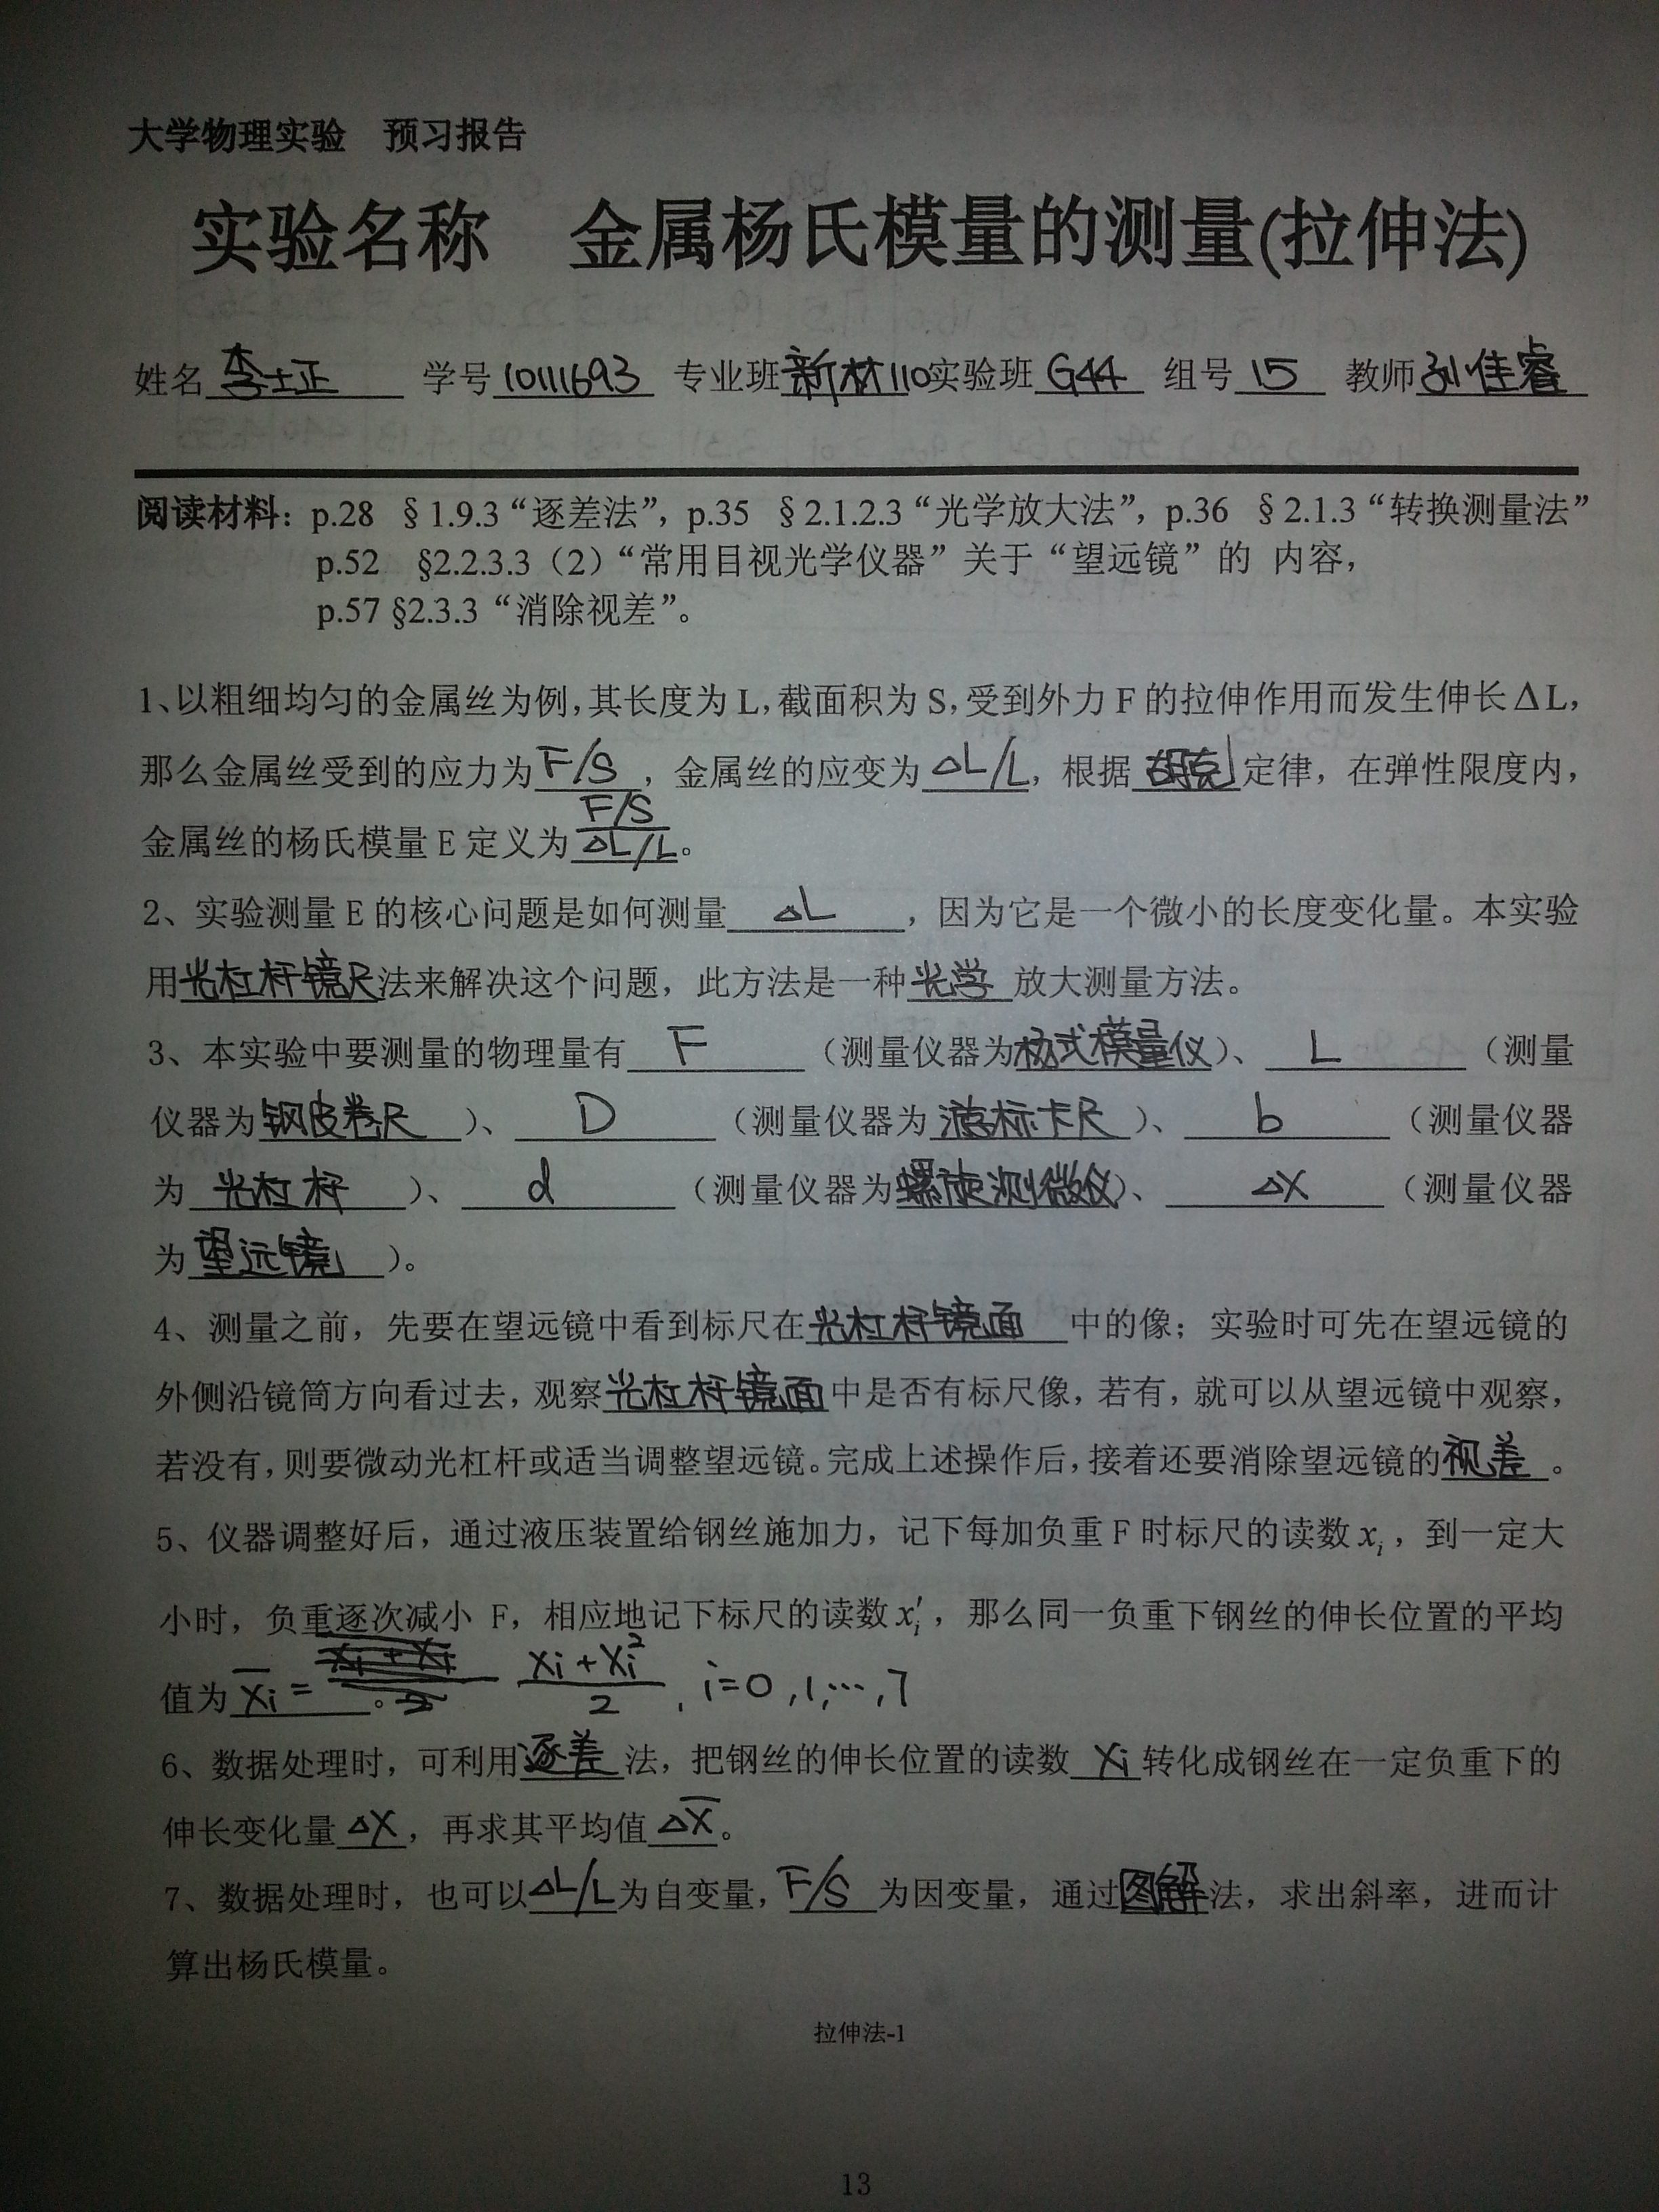 大学物理实验 预习报告
实验名称 金属杨氏模量的测量(拉伸法)
姓名 李士正 学号 10111693 专业班 新材110 实验班 G44 组号 15 教师 孙佳睿
阅读材料：p.28 §1.9.3“逐差法”，p.35 §2.1.2.3“光学放大法”，p.36 §2.1.3“转换测量法”
p.52 §2.2.3.3（2）“常用目视光学仪器”关于“望远镜”的 内容，
p.57 §2.3.3“消除视差”。
1、以粗细均匀的金属丝为例，其长度为 L，截面积为 S，受到外力 F 的拉伸作用而发生伸长 ΔL，
那么金属丝受到的应力为 F/S ，金属丝的应变为 ΔL/L，根据 胡克 定律，在弹性限度内，
金属丝的杨氏模量 E 定义为 (F/S)/(ΔL/L)。
2、实验测量 E 的核心问题是如何测量 ΔL ，因为它是一个微小的长度变化量。本实验
用光杠杆镜尺法来解决这个问题，此方法是一种 光学 放大测量方法。
3、本实验中要测量的物理量有 F （测量仪器为杨式模量仪）、 L （测量
仪器为钢皮卷尺 ）、 D （测量仪器为 游标卡尺 ）、 b （测量仪器
为 光杠杆 ）、 d （测量仪器为螺旋测微仪）、 Δx （测量仪器
为 望远镜 ）。
4、测量之前，先要在望远镜中看到标尺在 光杠杆镜面 中的像；实验时可先在望远镜的
外侧沿镜筒方向看过去，观察 光杠杆镜面 中是否有标尺像，若有，就可以从望远镜中观察，
若没有，则要微动光杠杆或适当调整望远镜。完成上述操作后，接着还要消除望远镜的 视差 。
5、仪器调整好后，通过液压装置给钢丝施加力，记下每加负重 F 时标尺的读数 xᵢ，到一定大
小时，负重逐次减小 F，相应地记下标尺的读数 xᵢ′，那么同一负重下钢丝的伸长位置的平均
值为 x̄ᵢ = (xᵢ+xᵢ²)/2 , i=0,1,…,7 。
6、数据处理时，可利用 逐差 法，把钢丝的伸长位置的读数 xᵢ 转化成钢丝在一定负重下的
伸长变化量 Δx ，再求其平均值 Δx̄ 。
7、数据处理时，也可以 ΔL/L 为自变量，F/S 为因变量，通过图解法，求出斜率，进而计
算出杨氏模量。
拉伸法-1
13